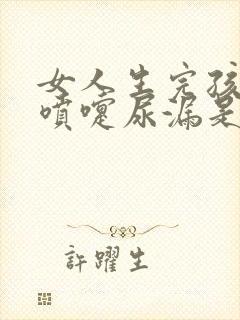 女人生完孩
噴嚏尿漏是
許躍生